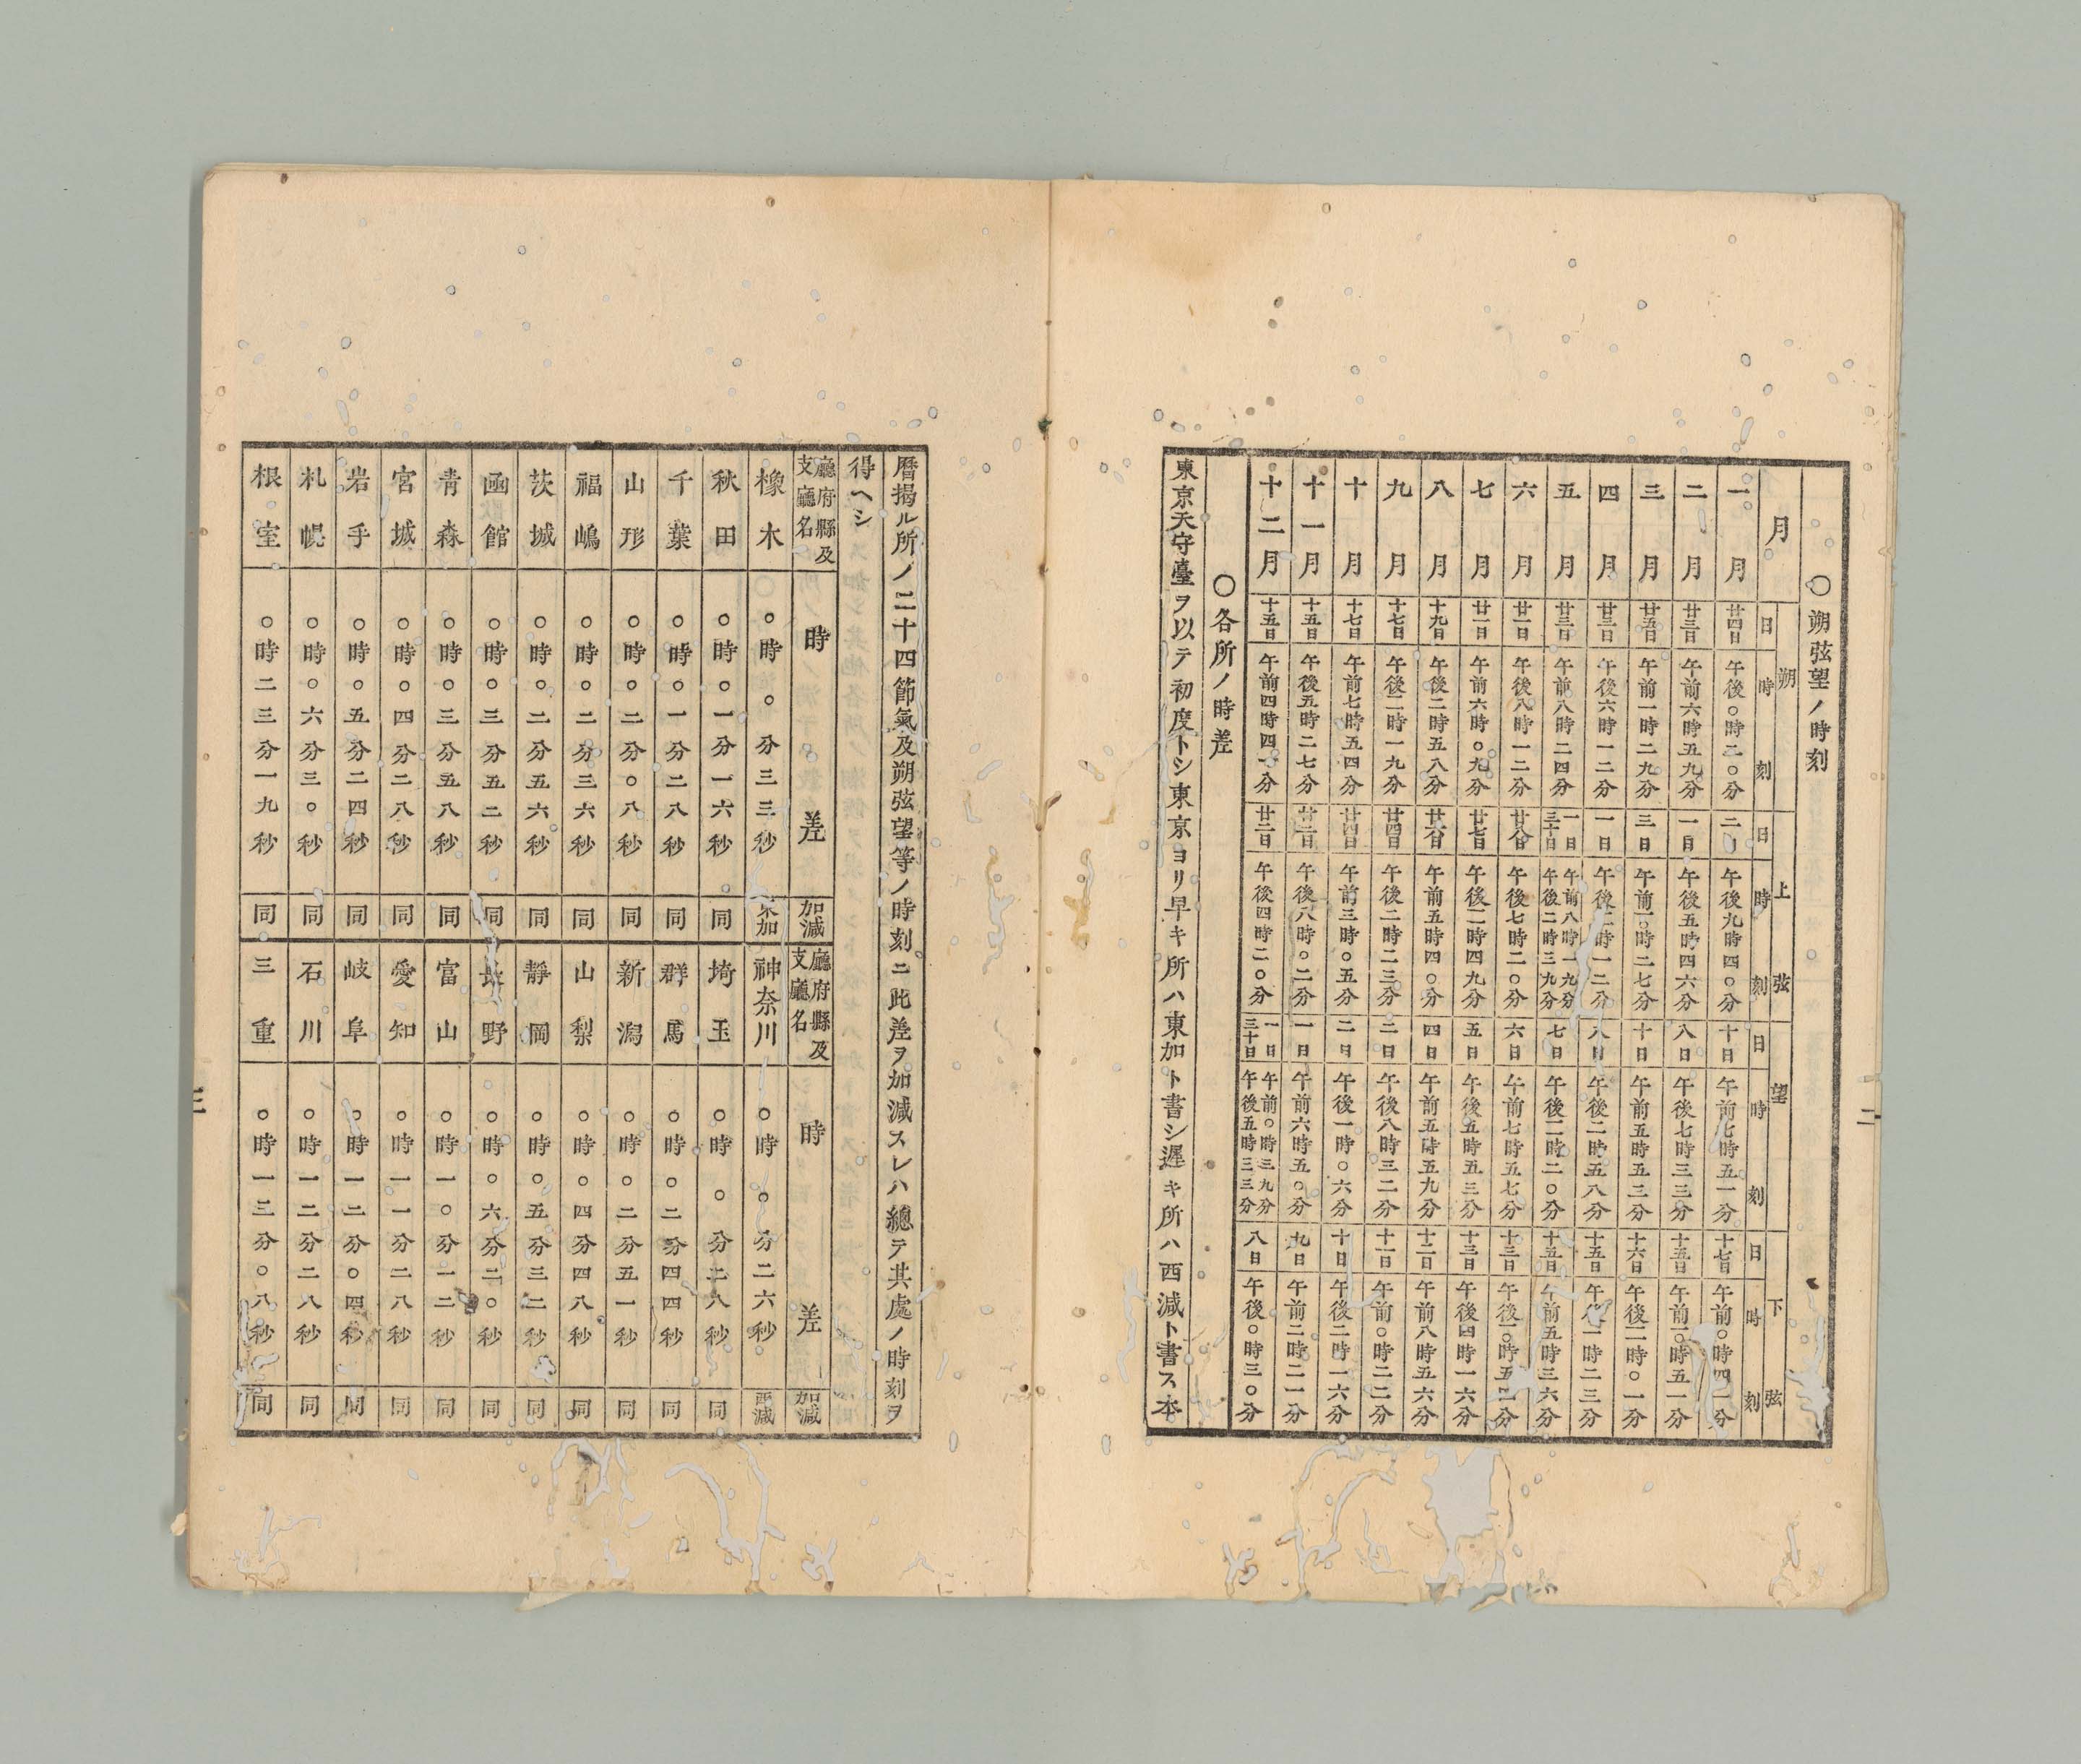 ○朔弦望ノ時刻
月 朔 日 時刻 上弦 日 時刻 望 日 時刻 下弦 日 時刻
一月 廿四日 午後○時二○分 午後九時四○分 十日 午前七時五一分 十七日 午前○時四一分
二月 廿三日 午前六時五九分 一日 午後五時四六分 八日 午後七時三三分 十五日 午前一○時五一分
三月 廿五日 午前一時二九分 三日 午前一○時二七分 十日 午前五時五三分 十六日 午後一一時○一分
四月 廿三日 午後六時一二分 一日 八日 午後二時五八分 十五日
五月 廿三日 午前八時二四分 一日 午前八時一九分 三十日 午後二時三九分 七日 午後一一時二○分 十五日 午前五時三六分
六月 廿一日 午後八時一二分 廿八日 午後七時二○分 六日 午前七時五七分 十三日
七月 廿一日 午前六時○九分 廿七日 午後一一時四九分 五日 午後五時五三分 十三日 午後四時一六分
八月 十九日 午後二時五八分 廿六日 午前五時四○分 四日 午前五時五九分 十二日 午前八時五六分
九月 十七日 午後一一時一九分 廿四日 午後二時二三分 二日 午後八時三二分 十一日 午前○時二二分
十月 十七日 午前七時五四分 廿四日 午前三時○五分 二日 午後一時○六分 十日 午後二時一六分
十一月 十五日 午後五時二七分 廿二日 午後八時○二分 一日 午前六時五○分 九日 午前二時二一分
十二月 十五日 午前四時四一分 廿二日 午後四時二○分 一日 午前○時三九分 三十日 午後五時三三分 八日 午後○時三○分
○各所ノ時差
東京天守臺ヲ以テ初度トシ東京ヨリ早キ所ハ東加ト書シ遲キ所ハ西減ト書ス本
二
曆揭ル所ノ二十四節氣及朔弦望等ノ時刻ニ此差ヲ加減スレハ總テ其處ノ時刻ヲ
得ヘシ
廳府縣及支廳名 時差 加減 廳府縣及支廳名 時差 加減
橡木 ○時○分三三秒 東加 神奈川 ○時○分二六秒 西減
秋田 ○時○一分一六秒 同 埼玉 ○時○分二八秒 同
千葉 ○時○一分二八秒 同 群馬 ○時○二分四四秒 同
山形 ○時○二分○八秒 同 新潟 ○時○二分五一秒 同
福嶋 ○時○二分三六秒 同 山梨 ○時○四分四八秒 同
茨城 ○時○二分五六秒 同 靜岡 ○時○五分三二秒 同
凾館 ○時○三分五二秒 同 長野 ○時○六分二○秒 同
靑森 ○時○三分五八秒 同 富山 ○時一○分一二秒 同
宮城 ○時○四分二八秒 同 愛知 ○時一一分二八秒 同
岩手 ○時○五分二四秒 同 岐阜 ○時一二分○四秒 同
札幌 ○時○六分三○秒 同 石川 ○時一二分二八秒 同
根室 ○時二三分一九秒 同 三重 ○時一三分○八秒 同
三